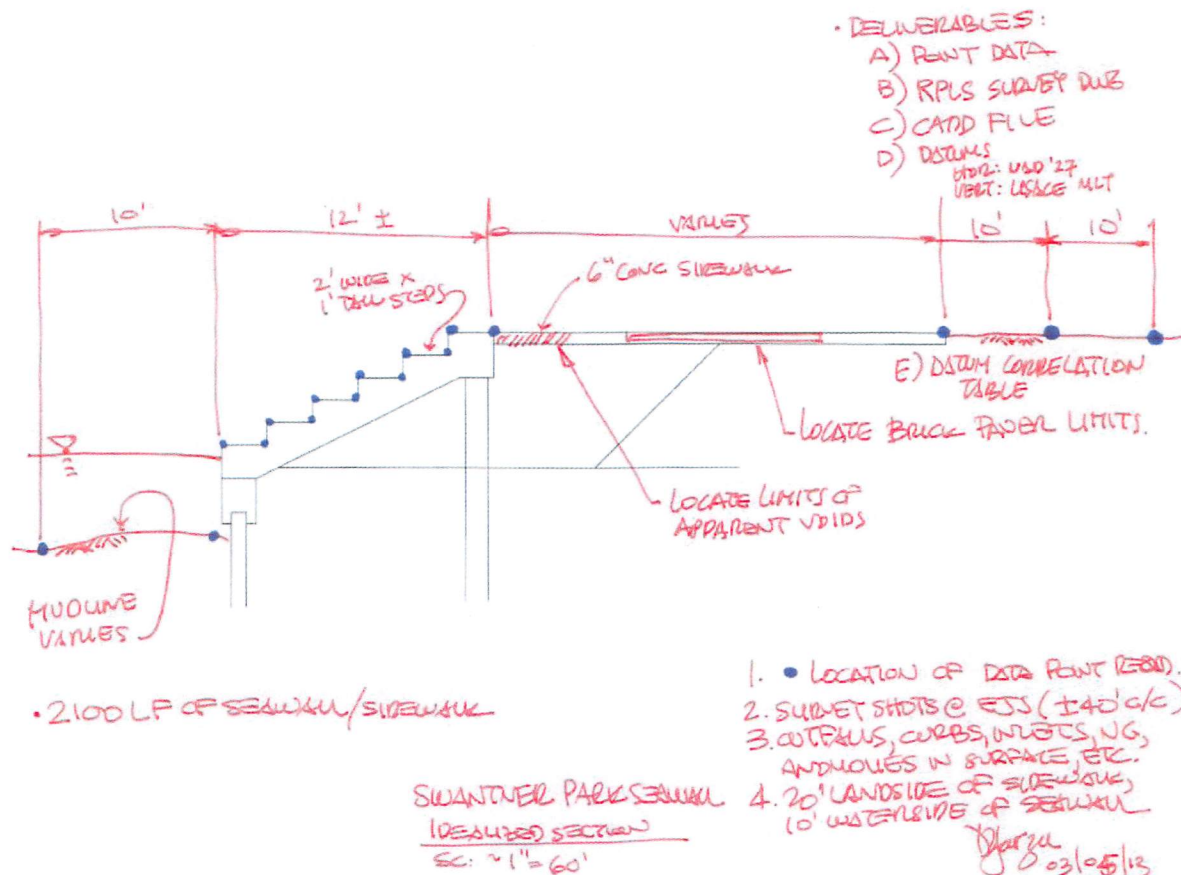 • DELIVERABLES:
A) POINT DATA
B) RPLS SURVEY DWG
C) CADD FILE
D) DATUMS
HOR: NAD '27
VERT: USACE MLT
10'
12' ±
VARIES
10'
10'
2' WIDE X
1' TALL STEPS
6" CONC SIDEWALK
E) DATUM CORRELATION
TABLE
LOCATE BRICK PAVER LIMITS.
LOCATE LIMITS OF
APPARENT VOIDS
MUDLINE
VARIES
• 2100 LF OF SEAWALL/SIDEWALK
1. • LOCATION OF DATA POINT REQD.
2. SURVEY SHOTS @ EJS (±40' C/C)
3. OUTFALLS, CURBS, INLETS, NG,
ANOMOLIES IN SURFACE, ETC.
4. 20' LANDSIDE OF SIDEWALK,
10' WATERSIDE OF SEAWALL
SWANTNER PARK SEAWALL
IDEALIZED SECTION
SC: ~1"=60'